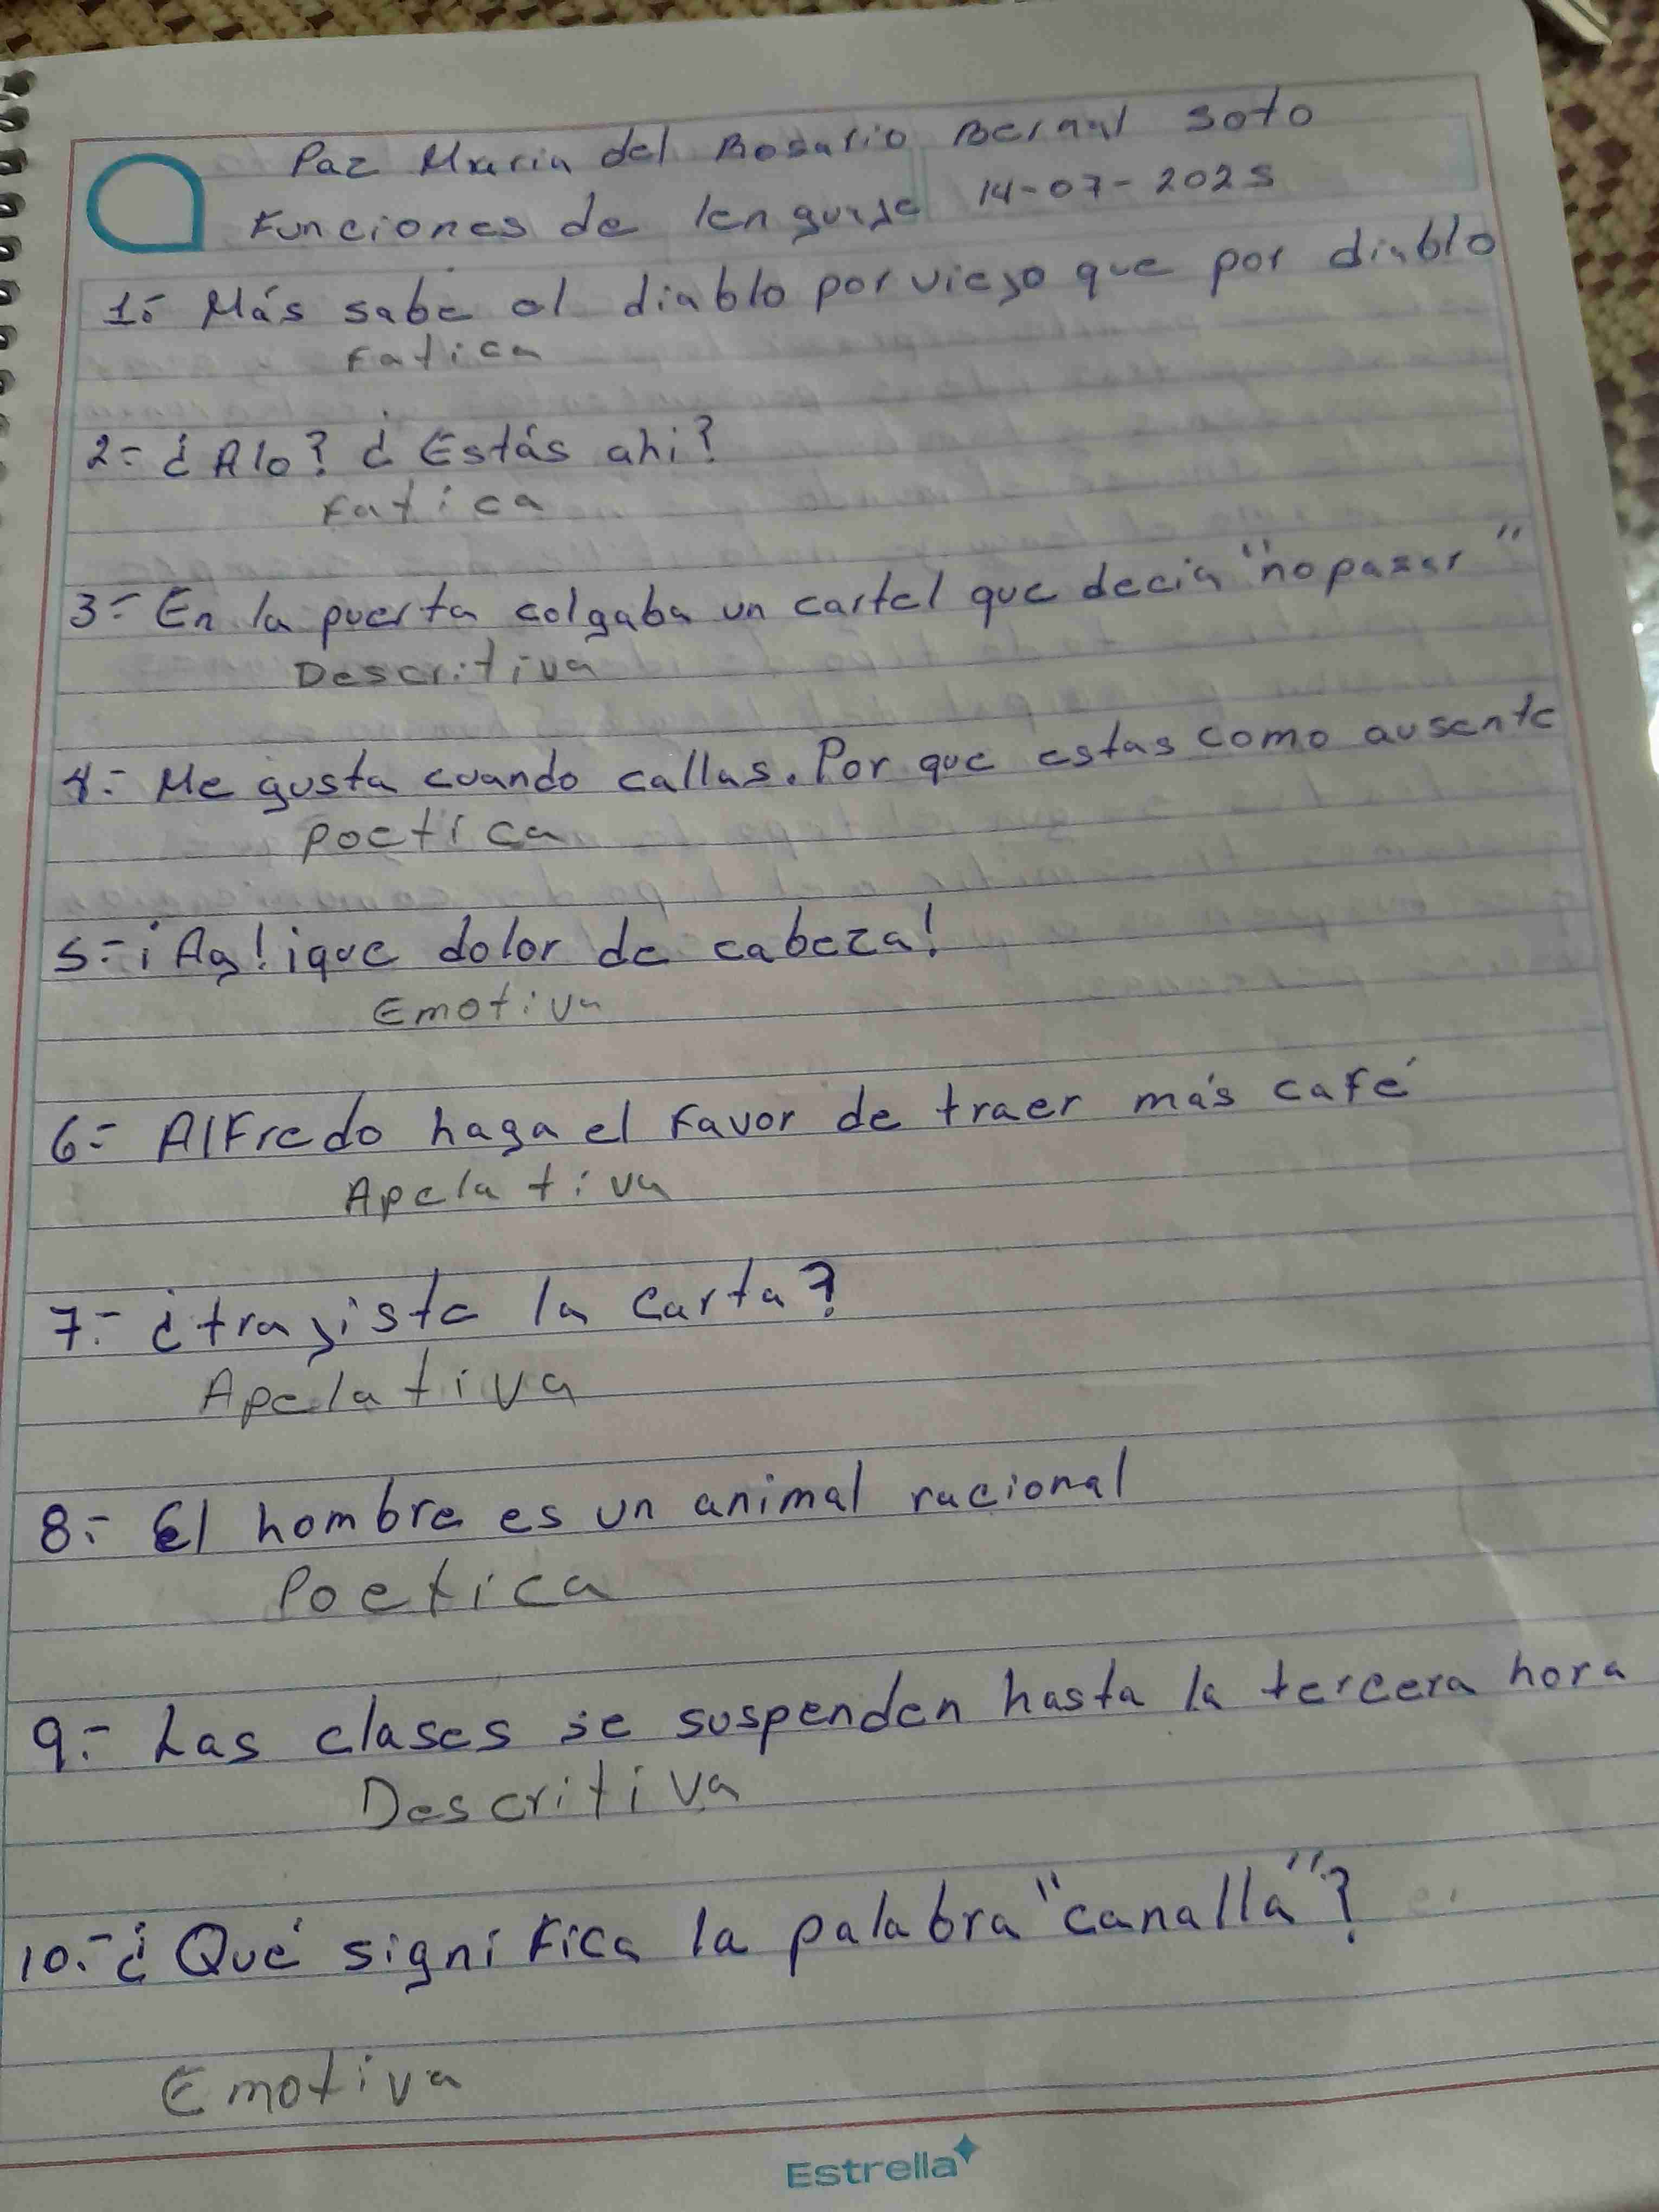 Paz Maria del Rosario Bernal Soto
Funciones de lenguaje 14-07-2025
1.- Más sabe el diablo por viejo que por diablo
Fatica
2.- ¿Alo? ¿Estás ahi?
Fatica
3.- En la puerta colgaba un cartel que decia "no pasar"
Descritiva
4.- Me gusta cuando callas. Por que estas como ausente
poetica
5.- ¡Ay! ¡que dolor de cabeza!
Emotiva
6.- Alfredo haga el favor de traer más café
Apelativa
7.- ¿trajiste la carta?
Apelativa
8.- El hombre es un animal racional
Poetica
9.- Las clases se suspenden hasta la tercera hora
Descritiva
10.- ¿Qué significa la palabra "canalla"?
Emotiva
Estrella